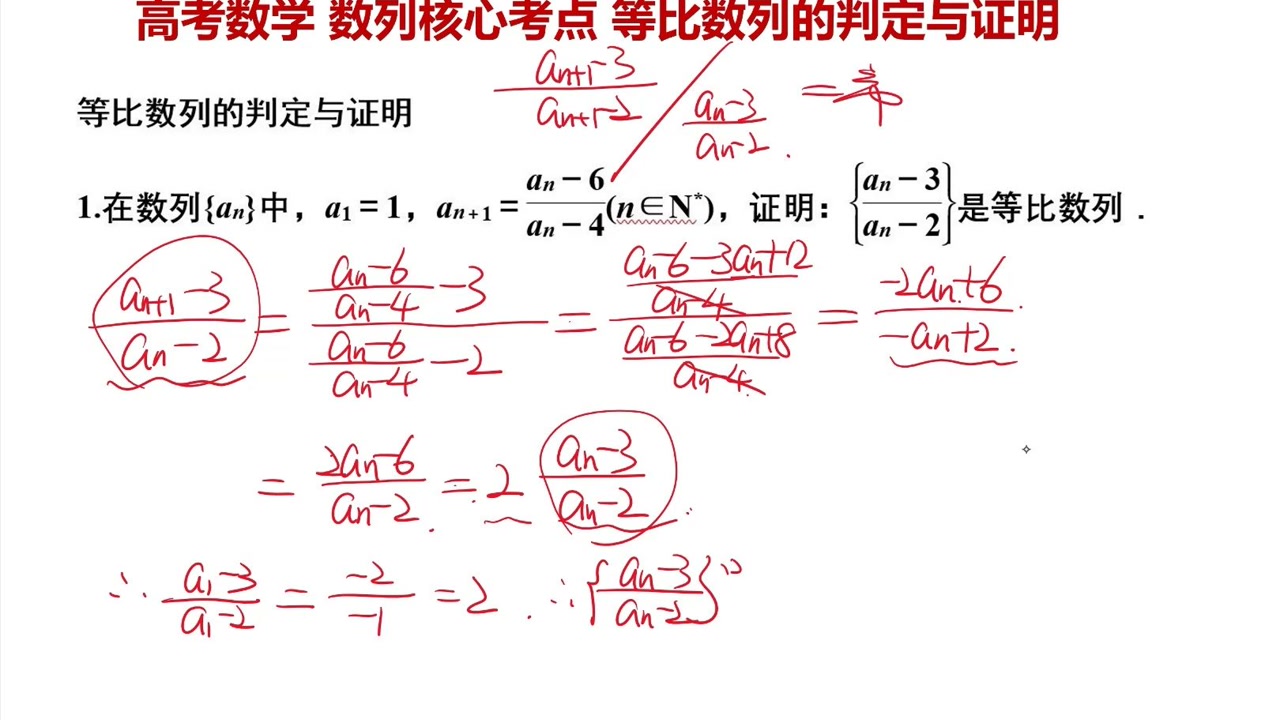 高考数学 数列核心考点 等比数列的判定与证明
等比数列的判定与证明
(an+1-3)/(an+1-2) / (an-3)/(an-2) =
1.在数列{an}中，a1=1，an+1=(an-6)/(an-4)(n∈N*)，证明：{(an-3)/(an-2)}是等比数列．
(an+1-3)/(an-2) = ((an-6)/(an-4)-3)/((an-6)/(an-4)-2) = ((an-6-3an+12)/(an-4))/((an-6-2an+8)/(an-4)) = (-2an+6)/(-an+2).
= (2an-6)/(an-2) = 2 (an-3)/(an-2).
∴ (a1-3)/(a1-2) = (-2)/(-1) = 2. ∴{(an-3)/(an-2)}